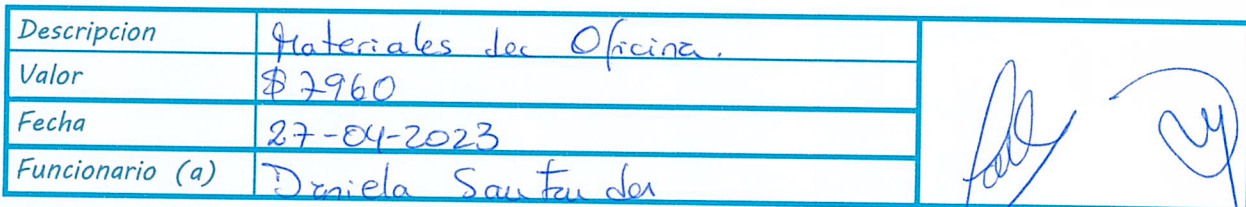 Descripcion Materiales de Oficina.
Valor $7960
Fecha 27-04-2023
Funcionario (a) Daniela Santander